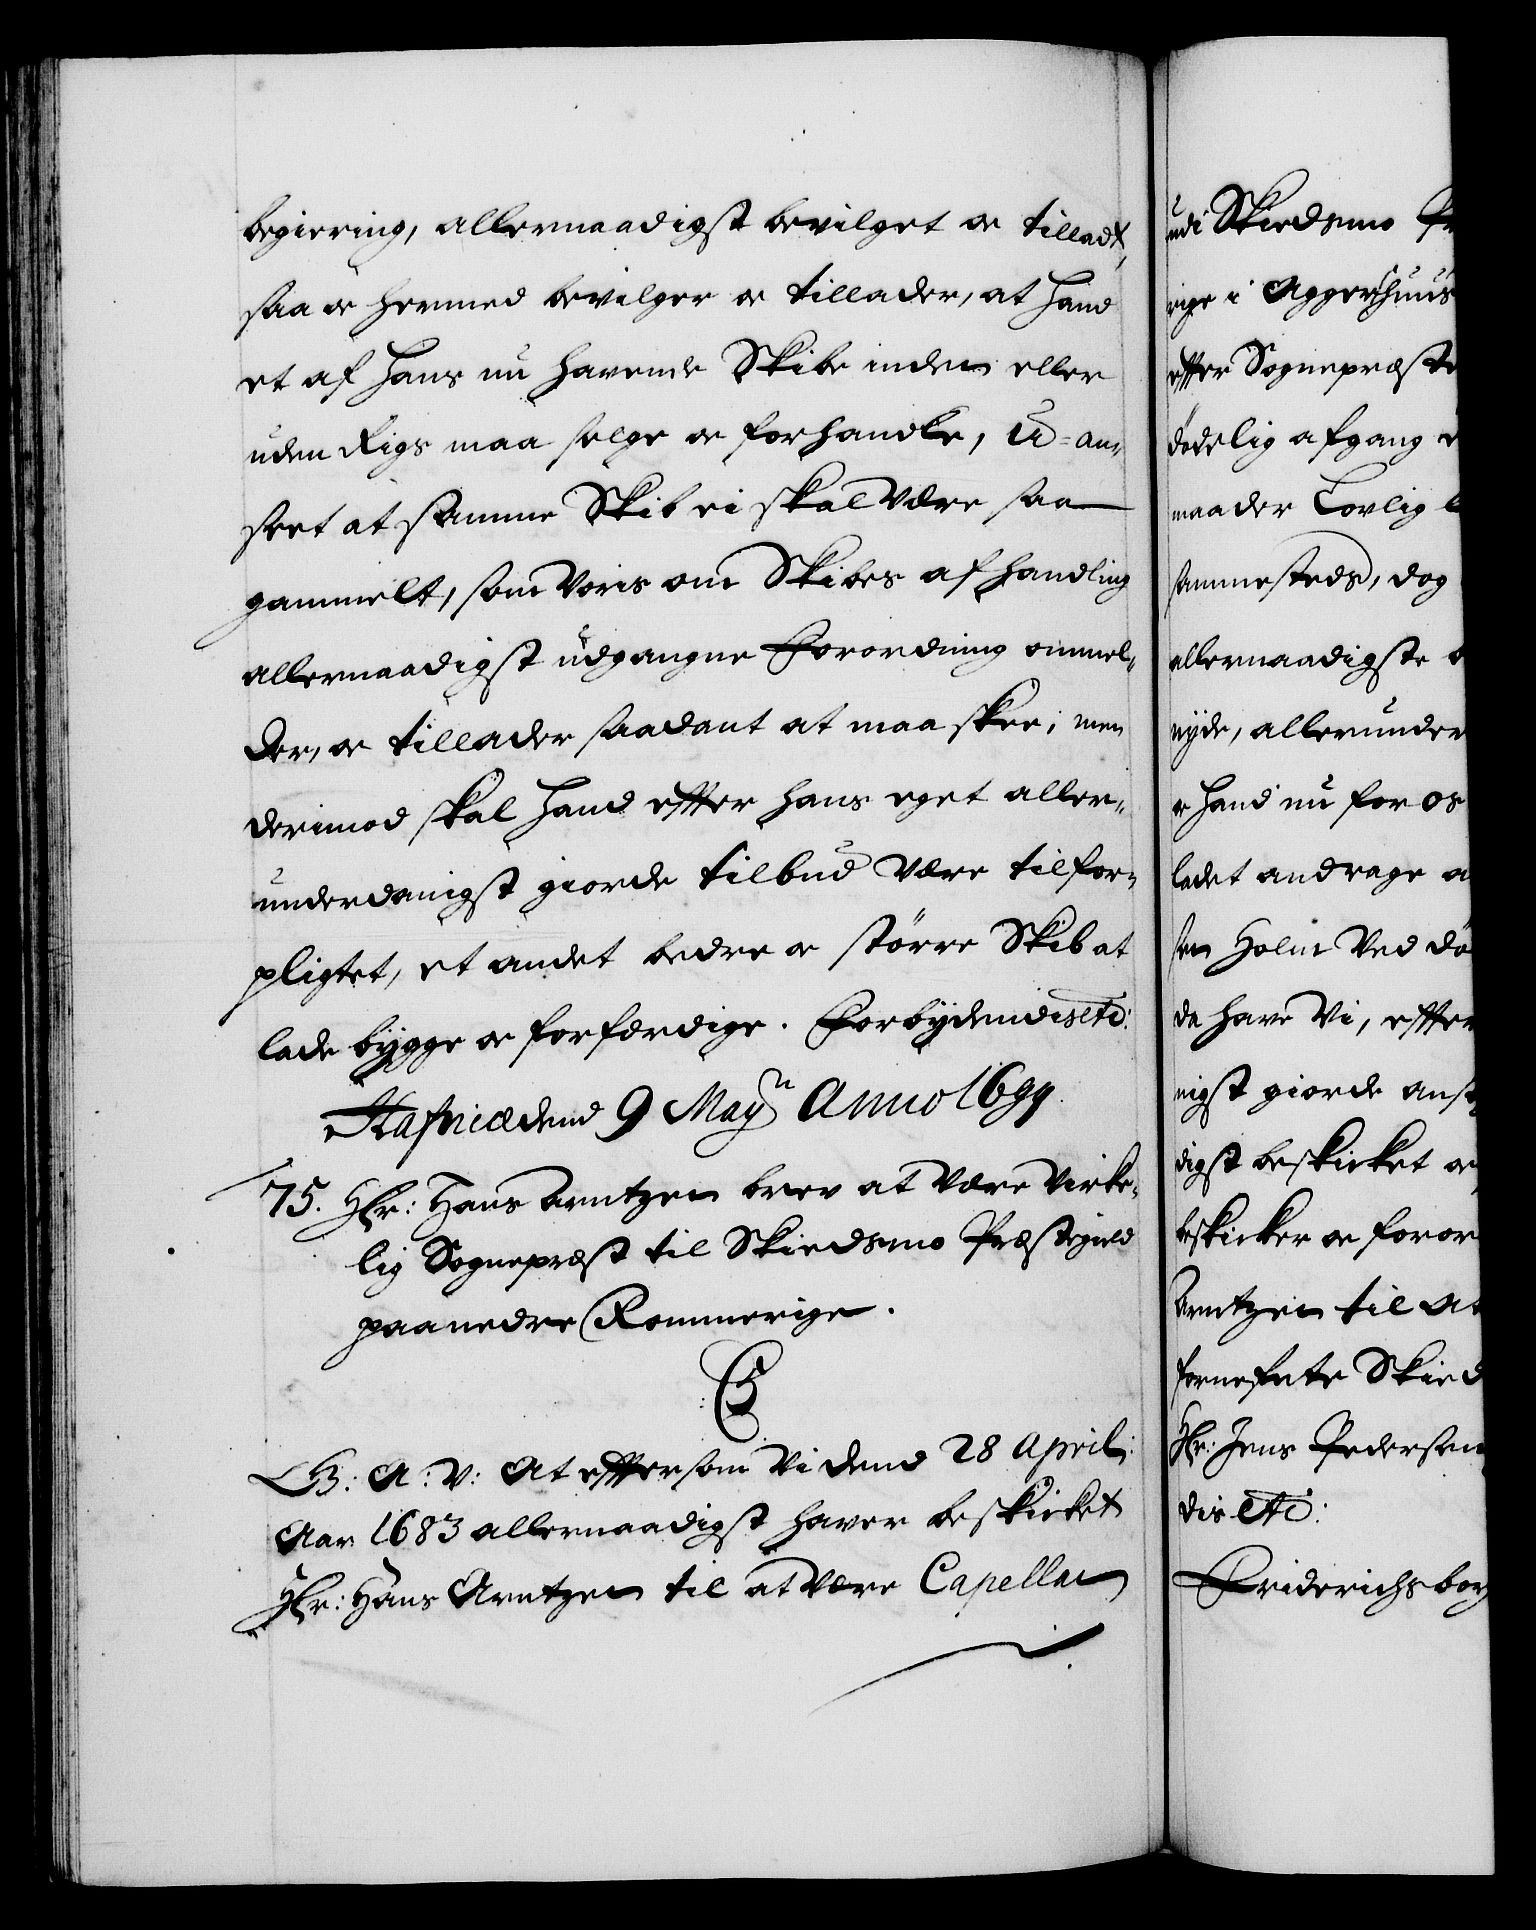 begiering, allernaadigst bevilget oc tilladt,
saa oc hermed bevilger oc tillader, at hand
et af hans nu havende Skibe inden eller
uden Rigs maa selge oc forhandle, U-an-
seet at samme Skib ei skal være saa
gammelt, som Voris om Skibes afhandling
allernaadigst udgangne Forordning ommel-
der, oc tillader saadant at maa skee; men
derimod skal hand effter hans eget aller-
underdanigst giorde tilbud være tilfor-
pligtet, et andet bedre oc större Skib at
lade bygge oc forfærdige. Forbydendis etc:
Hafniæ dend 9 May Anno 1699.
75. Hr: Hans Arntzen brev at være Virke-
lig Sognepræst til Skiedsmo Præstegield
paa nedre Rommerige.
C5
G: A: V: At effterson Vi dend 28 April:
Aar 1683 allernaadigst haver beskicket
Hr: Hans Arntzen til at være Capellan
udi Skiedsmo Pr
rige i Aggershuus
effter Sognepræste
dödelig afgang
maader Lovlig
sammesteds, dog
allernaadigste
nyde, allerunder
hand nu for os
ladet andrage a
sen Holm Ved dö
da have Vi, effter
nigst giorde ans
digst beskicket oc
beskicker oc foror
Arntzen til At
fornefnte Skied
Hr: Jens Pedersen
dis etc:
Friderichsborg